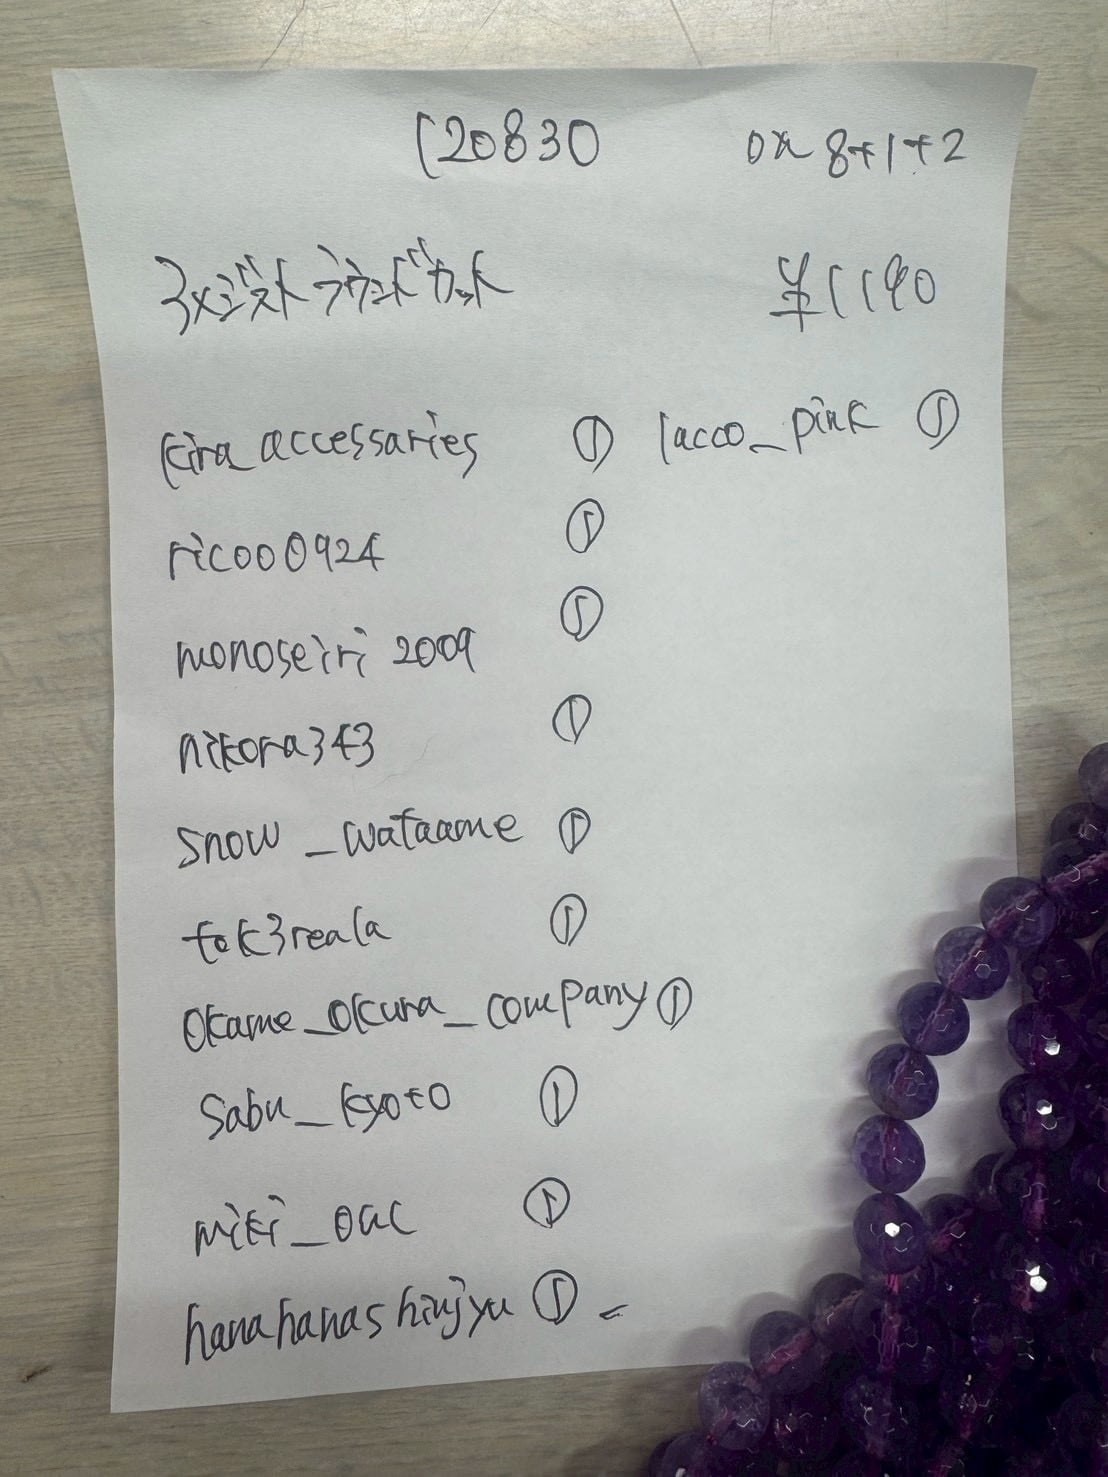 120830 on 8+1+2
アメジストラウンドカット ¥1190
kira_accessaries ① lacco_pink ①
ricoo0924 ①
monoseiri2009 ①
nikora343 ①
snow_wataame ①
tok3reala ①
okame_okura_company ①
sabu_kyoto ①
miki_oac ①
hanahanashinjyu ①